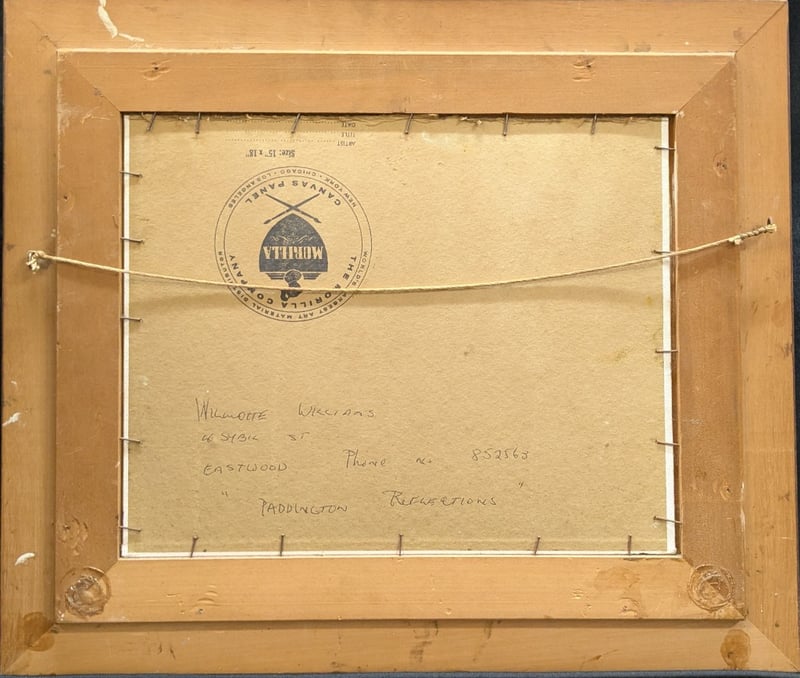 ARTIST
TITLE
DATE
Size: 15" x 18"
NEW YORK · CHICAGO · LOS ANGELES
CANVAS PANEL
MORILLA
THE MORILLA COMPANY
WORLD'S LARGEST ART MATERIAL DISTRIBUTOR
WILMOTTE WILLIAMS
SYBIL ST
EASTWOOD Phone no 852563
" PADDINGTON REFLECTIONS "